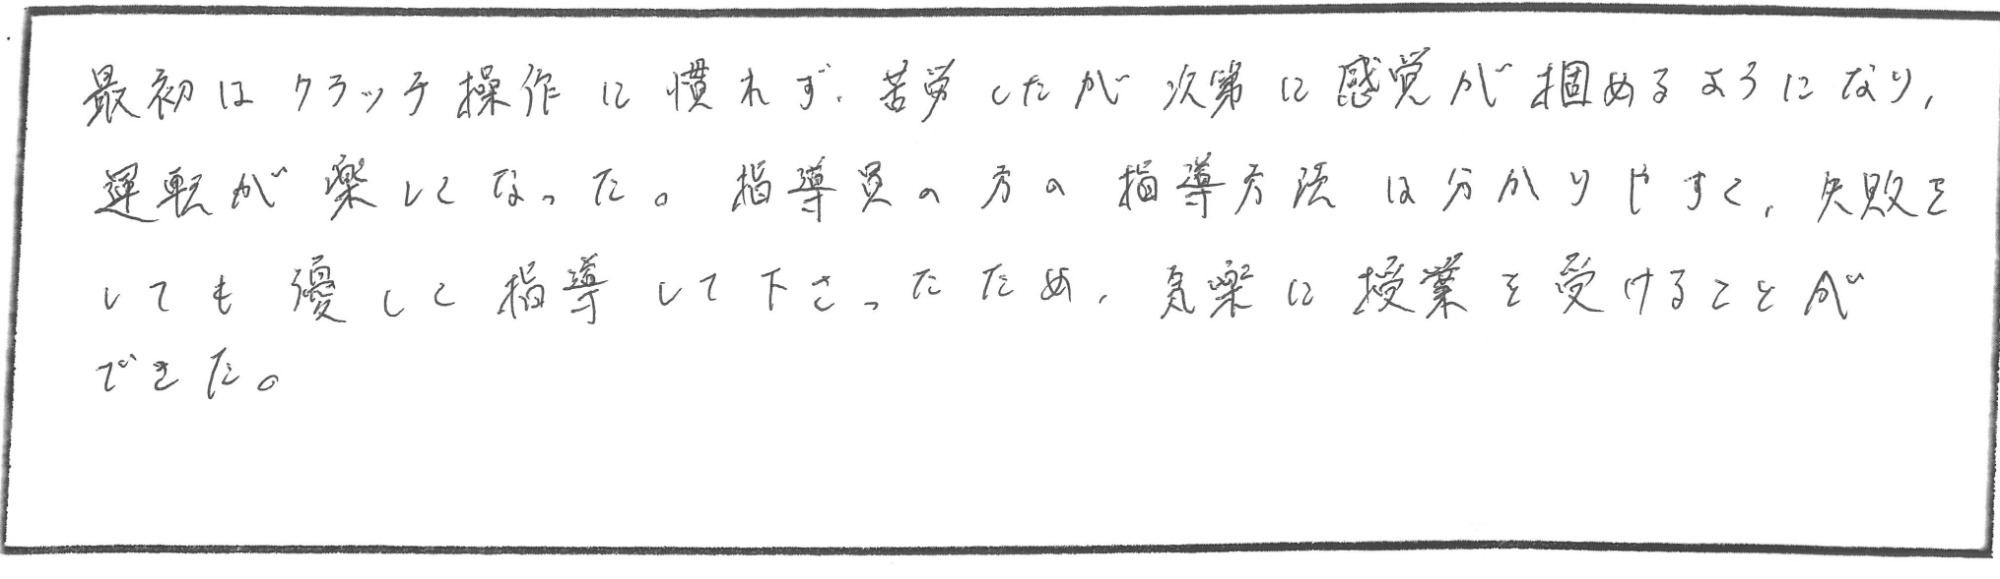 最初はクラッチ操作に慣れず、苦労したが次第に感覚が掴めるようになり、
運転が楽しくなった。指導員の方の指導方法は分かりやすく、失敗を
しても優しく指導して下さったため、気楽に授業を受けることが
できた。